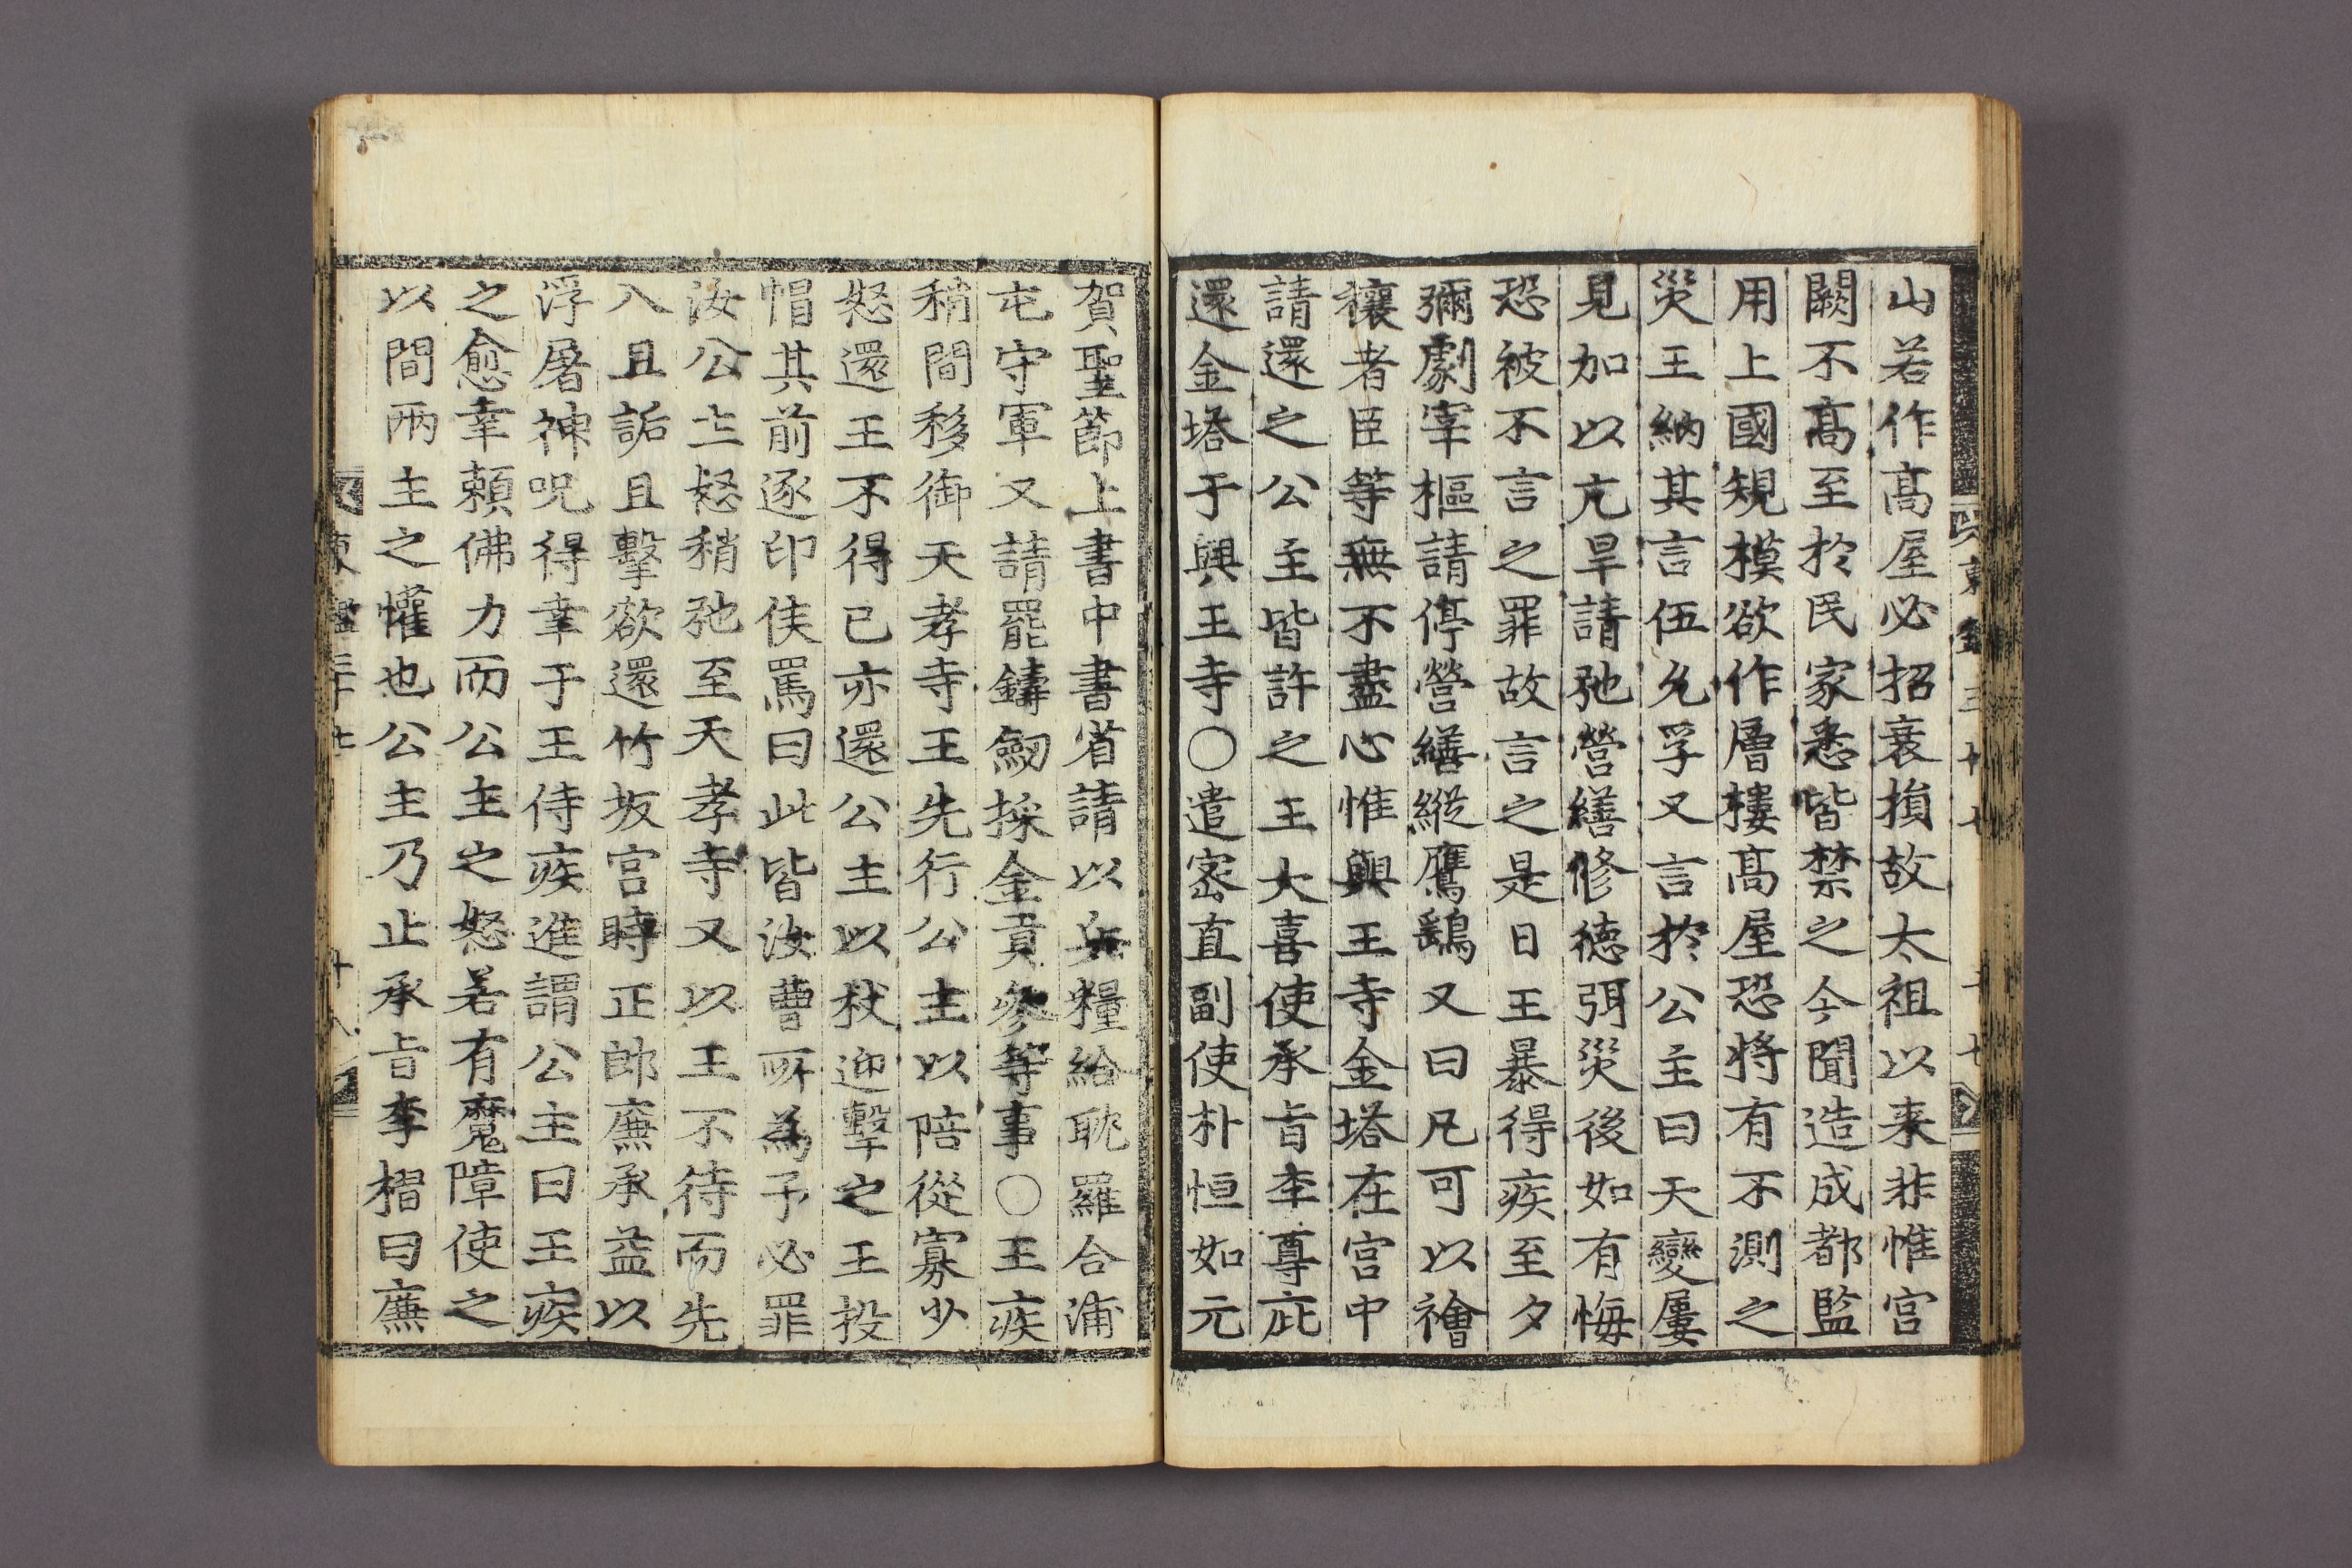 山若作髙屋必招衰損故太祖以来非惟宫
闕不髙至於民家悉皆禁之今聞造成都監
用上國䂓模欲作層樓髙屋恐將有不測之
災王納其言伍允孚又言於公主曰天變屢
見加以亢旱請弛營繕修德弭災後如有悔
恐被不言之罪故言之是日王暴得疾至夕
彌劇宰樞請停營繕縱鷹鷂又曰凡可以禬
禳者臣等無不盡心惟興王寺金塔在宫中
請還之公主皆許之王大喜使承旨李尊庇
還金塔于興王寺○遣密直副使朴恒如元
東鑑三十七
十七
賀聖節上書中書省請以兵糧給耽羅合浦
屯守軍又請罷鑄劒採金貢參等事○王疾
稍間移御天孝寺王先行公主以陪從寡少
怒還王不得已亦還公主以杖迎擊之王投
帽其前逐印侯罵曰此皆汝曹所為予必罪
汝公主怒稍弛至天孝寺又以王不待而先
入且詬且擊欲還竹坂宫時正郎廉承益以
浮屠神呪得幸于王侍疾進謂公主曰王疾
之愈幸頼佛力而公主之怒若有魔障使之
以間兩主之懽也公主乃止承旨李槢曰廉
東鑑三十七
十八